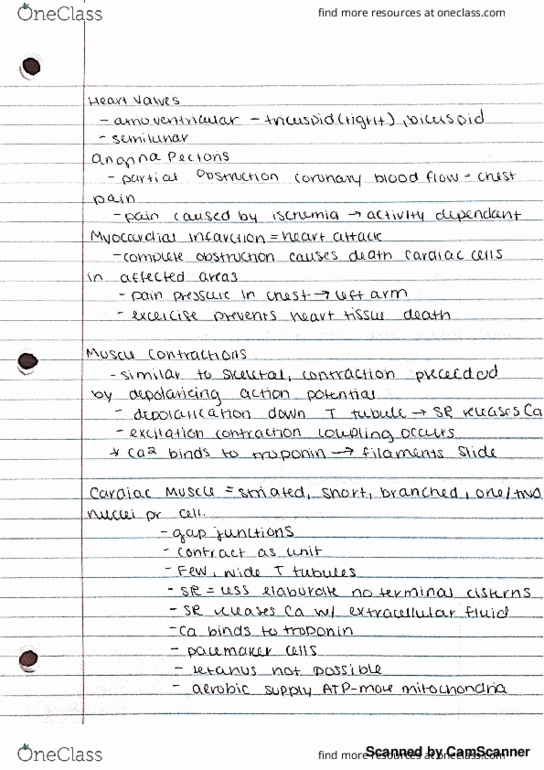 OneClass
find more resources at oneclass.com
Heart Valves
- atrioventricular - tricuspid (right), bicuspid
- semilunar
Angina Pectoris
- partial obstruction coronary blood flow - chest
pain
- pain caused by ischemia → activity dependant
Myocardial Infarction = heart attack
- complete obstruction causes death cardiac cells
in affected areas
- pain pressure in chest → left arm
- excercise prevents heart tissue death
Muscle Contractions
- similar to skeletal, contraction preceded
by depolarizing action potential
- depolarization down T tubule → SR releases Ca
- excitation contraction coupling occurs
↓ Ca2 binds to troponin → filaments slide
Cardiac Muscle = striated, short, branched, one/two
nuclei pr cell.
- gap junctions
- contract as unit
- Few, wide T tubules
- SR = less elaborate no terminal cisterns
- SR releases Ca w/ extracellular fluid
- Ca binds to troponin
- pacemaker cells
- tetanus not possible
- aerobic supply ATP - more mitochondria
OneClass
find more resources at oneclass.com
Scanned by CamScanner